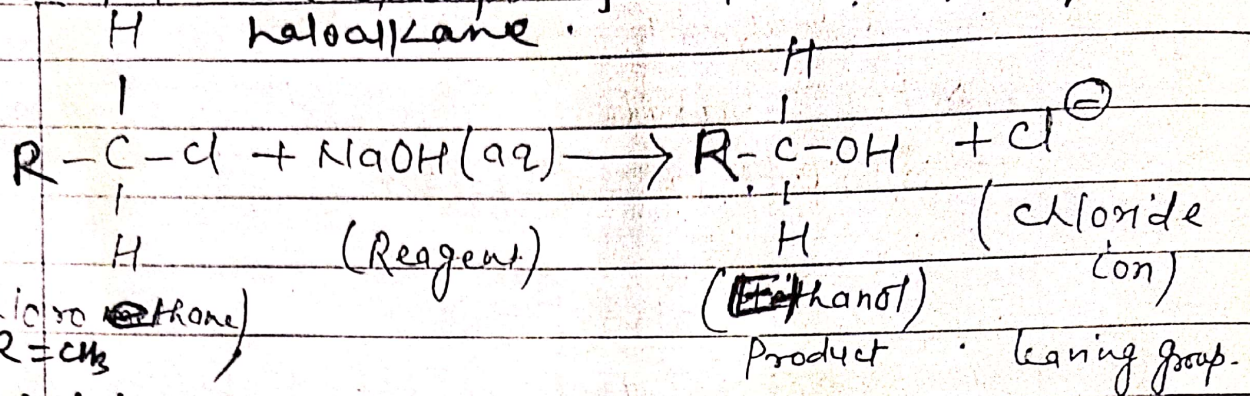 H haloalkane.
H
R-C-Cl + NaOH(aq) → R-C-OH + Cl⊖
H (Reagent) H (chloride
ion)
(Ethanol)
R=CH3 Product . leaving group.